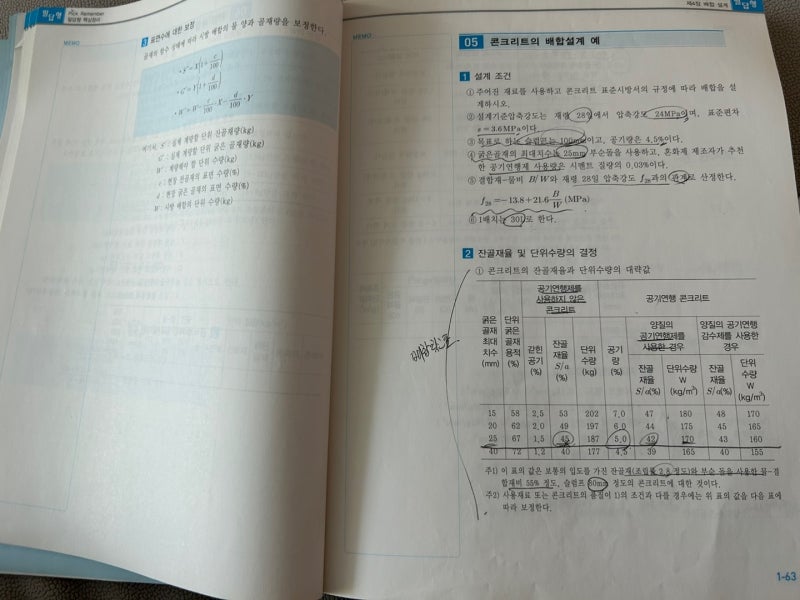 필답형
Pick Remember
필답형 핵심정리
MEMO
3 표면수에 대한 보정
골재의 함수 상태에 따라 시방 배합의 물 양과 골재량을 보정한다.
• S' = X(1 + c/100)
• G' = Y(1 + d/100)
• W' = W - c/100 · X - d/100 · Y
여기서, S' : 실제 계량할 단위 잔골재량(kg)
G' : 실제 계량할 단위 굵은 골재량(kg)
W' : 계량해야 할 단위 수량(kg)
c : 현장 잔골재의 표면 수량(%)
d : 현장 굵은 골재의 표면 수량(%)
W : 시방 배합의 단위 수량(kg)
제4장 배합 설계
필답형
MEMO
05 콘크리트의 배합설계 예
1 설계 조건
① 주어진 재료를 사용하고 콘크리트 표준시방서의 규정에 따라 배합을 설
계하시오.
② 설계기준압축강도는 재령 28일에서 압축강도 24MPa이며, 표준편차
s=3.6MPa이다.
③ 목표로 하는 슬럼프는 100mm이고, 공기량은 4.5%이다.
④ 굵은골재의 최대치수는 25mm 부순돌을 사용하고, 혼화제 제조자가 추천
한 공기연행제 사용량은 시멘트 질량의 0.03%이다.
⑤ 결합재-물비 B/W와 재령 28일 압축강도 f28과의 관계로 산정한다.
f28 = -13.8 + 21.6 B/W (MPa)
⑥ 1배치는 30l로 한다.
2 잔골재율 및 단위수량의 결정
① 콘크리트의 잔골재율과 단위수량의 대략값
배합강도
굵은 골재 최대 치수 (mm)
단위 굵은 골재 용적 (%)
공기연행제를 사용하지 않은 콘크리트
공기연행 콘크리트
갇힌 공기 (%)
잔골 재율 S/a (%)
단위 수량 (kg)
공기 량 (%)
양질의 공기연행제를 사용한 경우
양질의 공기연행 감수제를 사용한 경우
잔골 재율 S/a(%)
단위수량 W (kg/m³)
잔골 재율 S/a(%)
단위 수량 W (kg/m³)
15 58 2.5 53 202 7.0 47 180 48 170
20 62 2.0 49 197 6.0 44 175 45 165
25 67 1.5 45 187 5.0 42 170 43 160
40 72 1.2 40 177 4.5 39 165 40 155
주1) 이 표의 값은 보통의 입도를 가진 잔골재(조립률 2.8 정도)와 부순 돌을 사용한 물-결
합재비 55% 정도, 슬럼프 80mm 정도의 콘크리트에 대한 것이다.
주2) 사용재료 또는 콘크리트의 품질이 1)의 조건과 다를 경우에는 위 표의 값을 다음 표에
따라 보정한다.
1-63